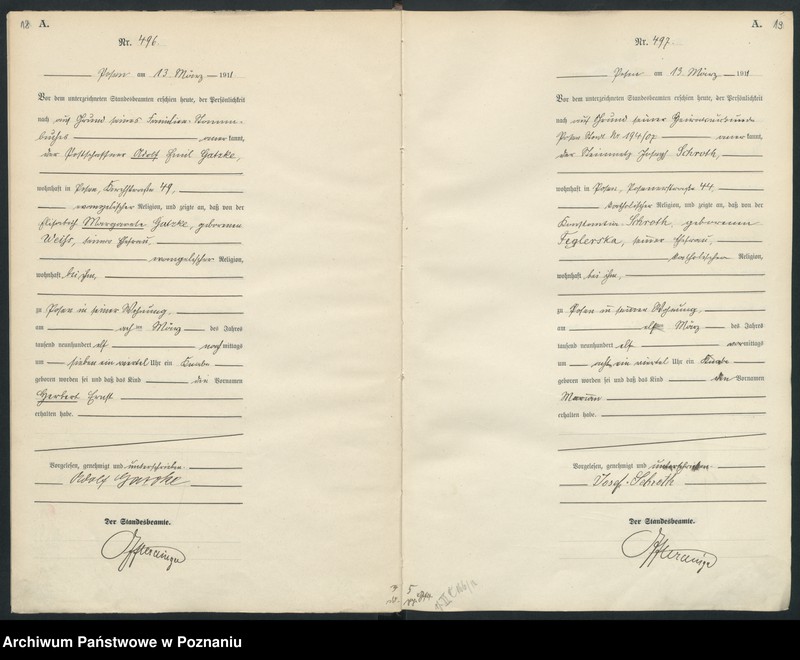 18 A.
Nr. 496.
Posen am 13. März 1911
Vor dem unterzeichneten Standesbeamten erschien heute, der Persönlichkeit
nach auf Grund seines Familien-Stamm-
buches anerkannt,
der Postschaffner Adolf Emil Gatzke,
wohnhaft in Posen, Kirchstraße 49,
evangelischer Religion, und zeigte an, daß von der
Elisabeth Margarete Gatzke, geborenen
Weihs, seiner Ehefrau,
evangelischer Religion,
wohnhaft bei ihm,
zu Posen in seiner Wohnung,
am März des Jahres
tausend neunhundert elf nachmittags
um sieben ein viertel Uhr ein Knabe
geboren worden sei und daß das Kind die Vornamen
Herbert Ernst
erhalten habe.
Vorgelesen, genehmigt und unterschrieben.
Adolf Gatzke
Der Standesbeamte.
A. 19
Nr. 497.
Posen am 13. März 1911
Vor dem unterzeichneten Standesbeamten erschien heute, der Persönlichkeit
nach auf Grund seiner Heiratsurkunde
Posen Nr. 194/07 anerkannt,
der Steinmetz Joseph Schroth,
wohnhaft in Posen, Posenerstraße 44,
katholischer Religion, und zeigte an, daß von der
Konstantia Schroth, geborenen
Feglerska, seiner Ehefrau,
katholischer Religion,
wohnhaft bei ihm,
zu Posen in seiner Wohnung,
am elften März des Jahres
tausend neunhundert elf vormittags
um acht ein viertel Uhr ein Knabe
geboren worden sei und daß das Kind den Vornamen
Marian
erhalten habe.
Vorgelesen, genehmigt und unterschrieben.
Josef Schroth
Der Standesbeamte.
Archiwum Państwowe w Poznaniu